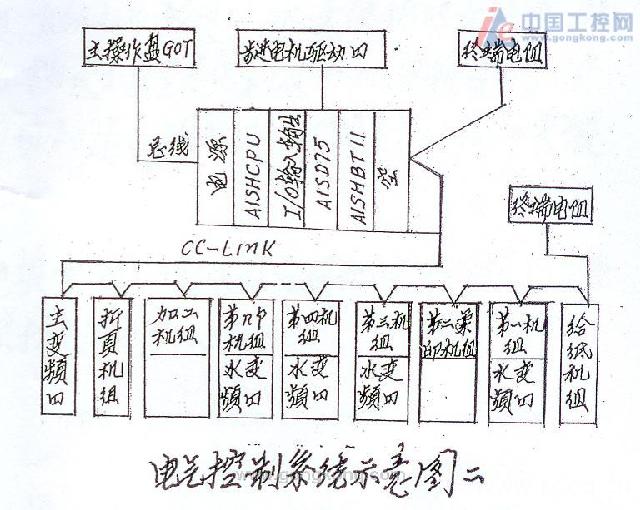 中国工控网
www.gongkong.com
主操作盘GOT
步进电机驱动口
终端电阻
总线
电源
AISHCPU
I/O输入输出
AISD75
AISHBT11
空
终端电阻
CC-LINK
主变频口
折页机组
加工机组
第八印机组
水变频口
第四机组
水变频口
第三机组
水变频口
第二柔印机组
第一机组
水变频口
给纸机组
电气控制系统示意图二